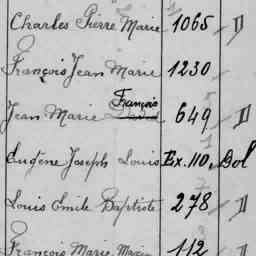 Charles Pierre Marie 1065 - D
François Jean Marie 1230
François
Jean Marie 649 D
Eugène Joseph Louis Ex. 110, Dol
Louis Emile Baptiste 278 - D
François Marie 112